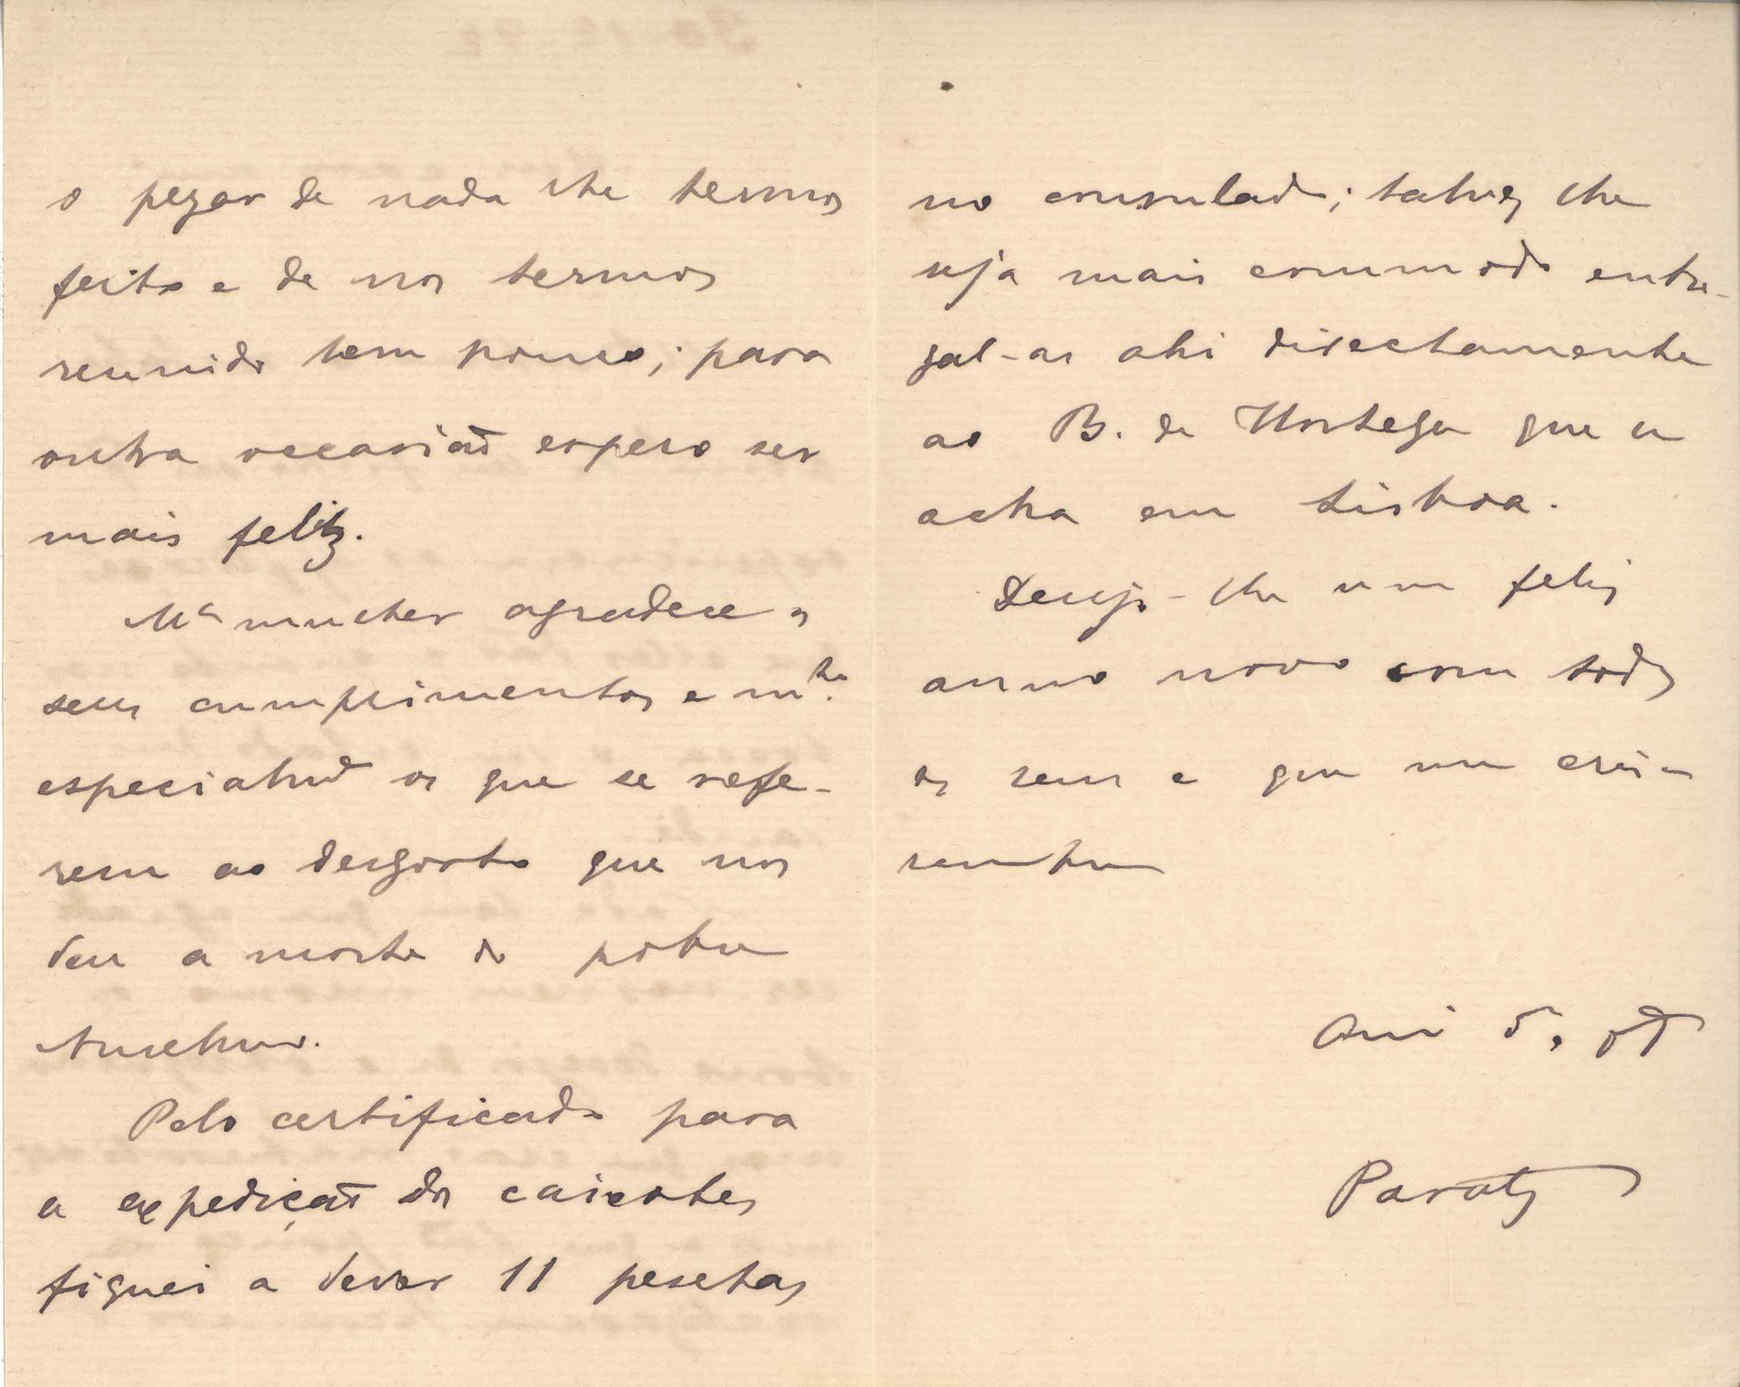 o pezar de nada lhe termos
feito e de nos termos
reunido tam pouco; para
outra occasião espero ser
mais feliz.
Mª mulher agradece os
seus cumprimentos e mto.
especialmte os que se refe-
rem ao desgosto que nos
deu a morte do pobre
Anselmo.
Pelo certificado para
a expedição dos caixotes
fiquei a dever 11 pesetas
no consulado; talvez lhe
seja mais commodo entre-
gal-as ahi directamente
ao B. de que se
acha em Lisboa.
Desejo-lhe um feliz
anno novo com todos
os seus e que me creia
sempre
Paraty